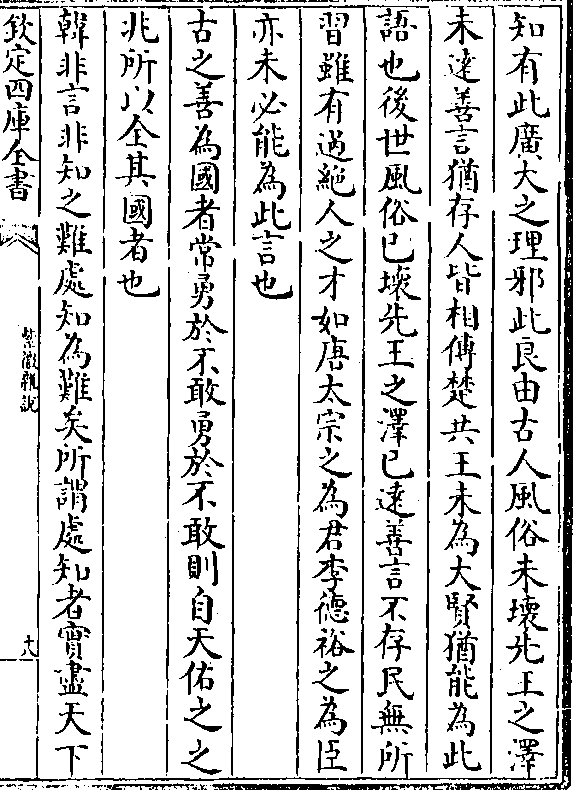 知有此廣大之理邪此良由古人風俗未壊先王之澤
未逺善言猶存人皆相傳楚共王未為大賢猶能為此
語也後世風俗已壊先王之澤已逺善言不存民無所
習雖有過絶人之才如唐太宗之為君李德裕之為臣
亦未必能為此言也
古之善為國者常勇於不敢勇於不敢則自天佑之之
兆所以全其國者也
韓非言非知之難處知為難矣所謂處知者實盡天下
欽定四庫全書
紫微雜說
十八